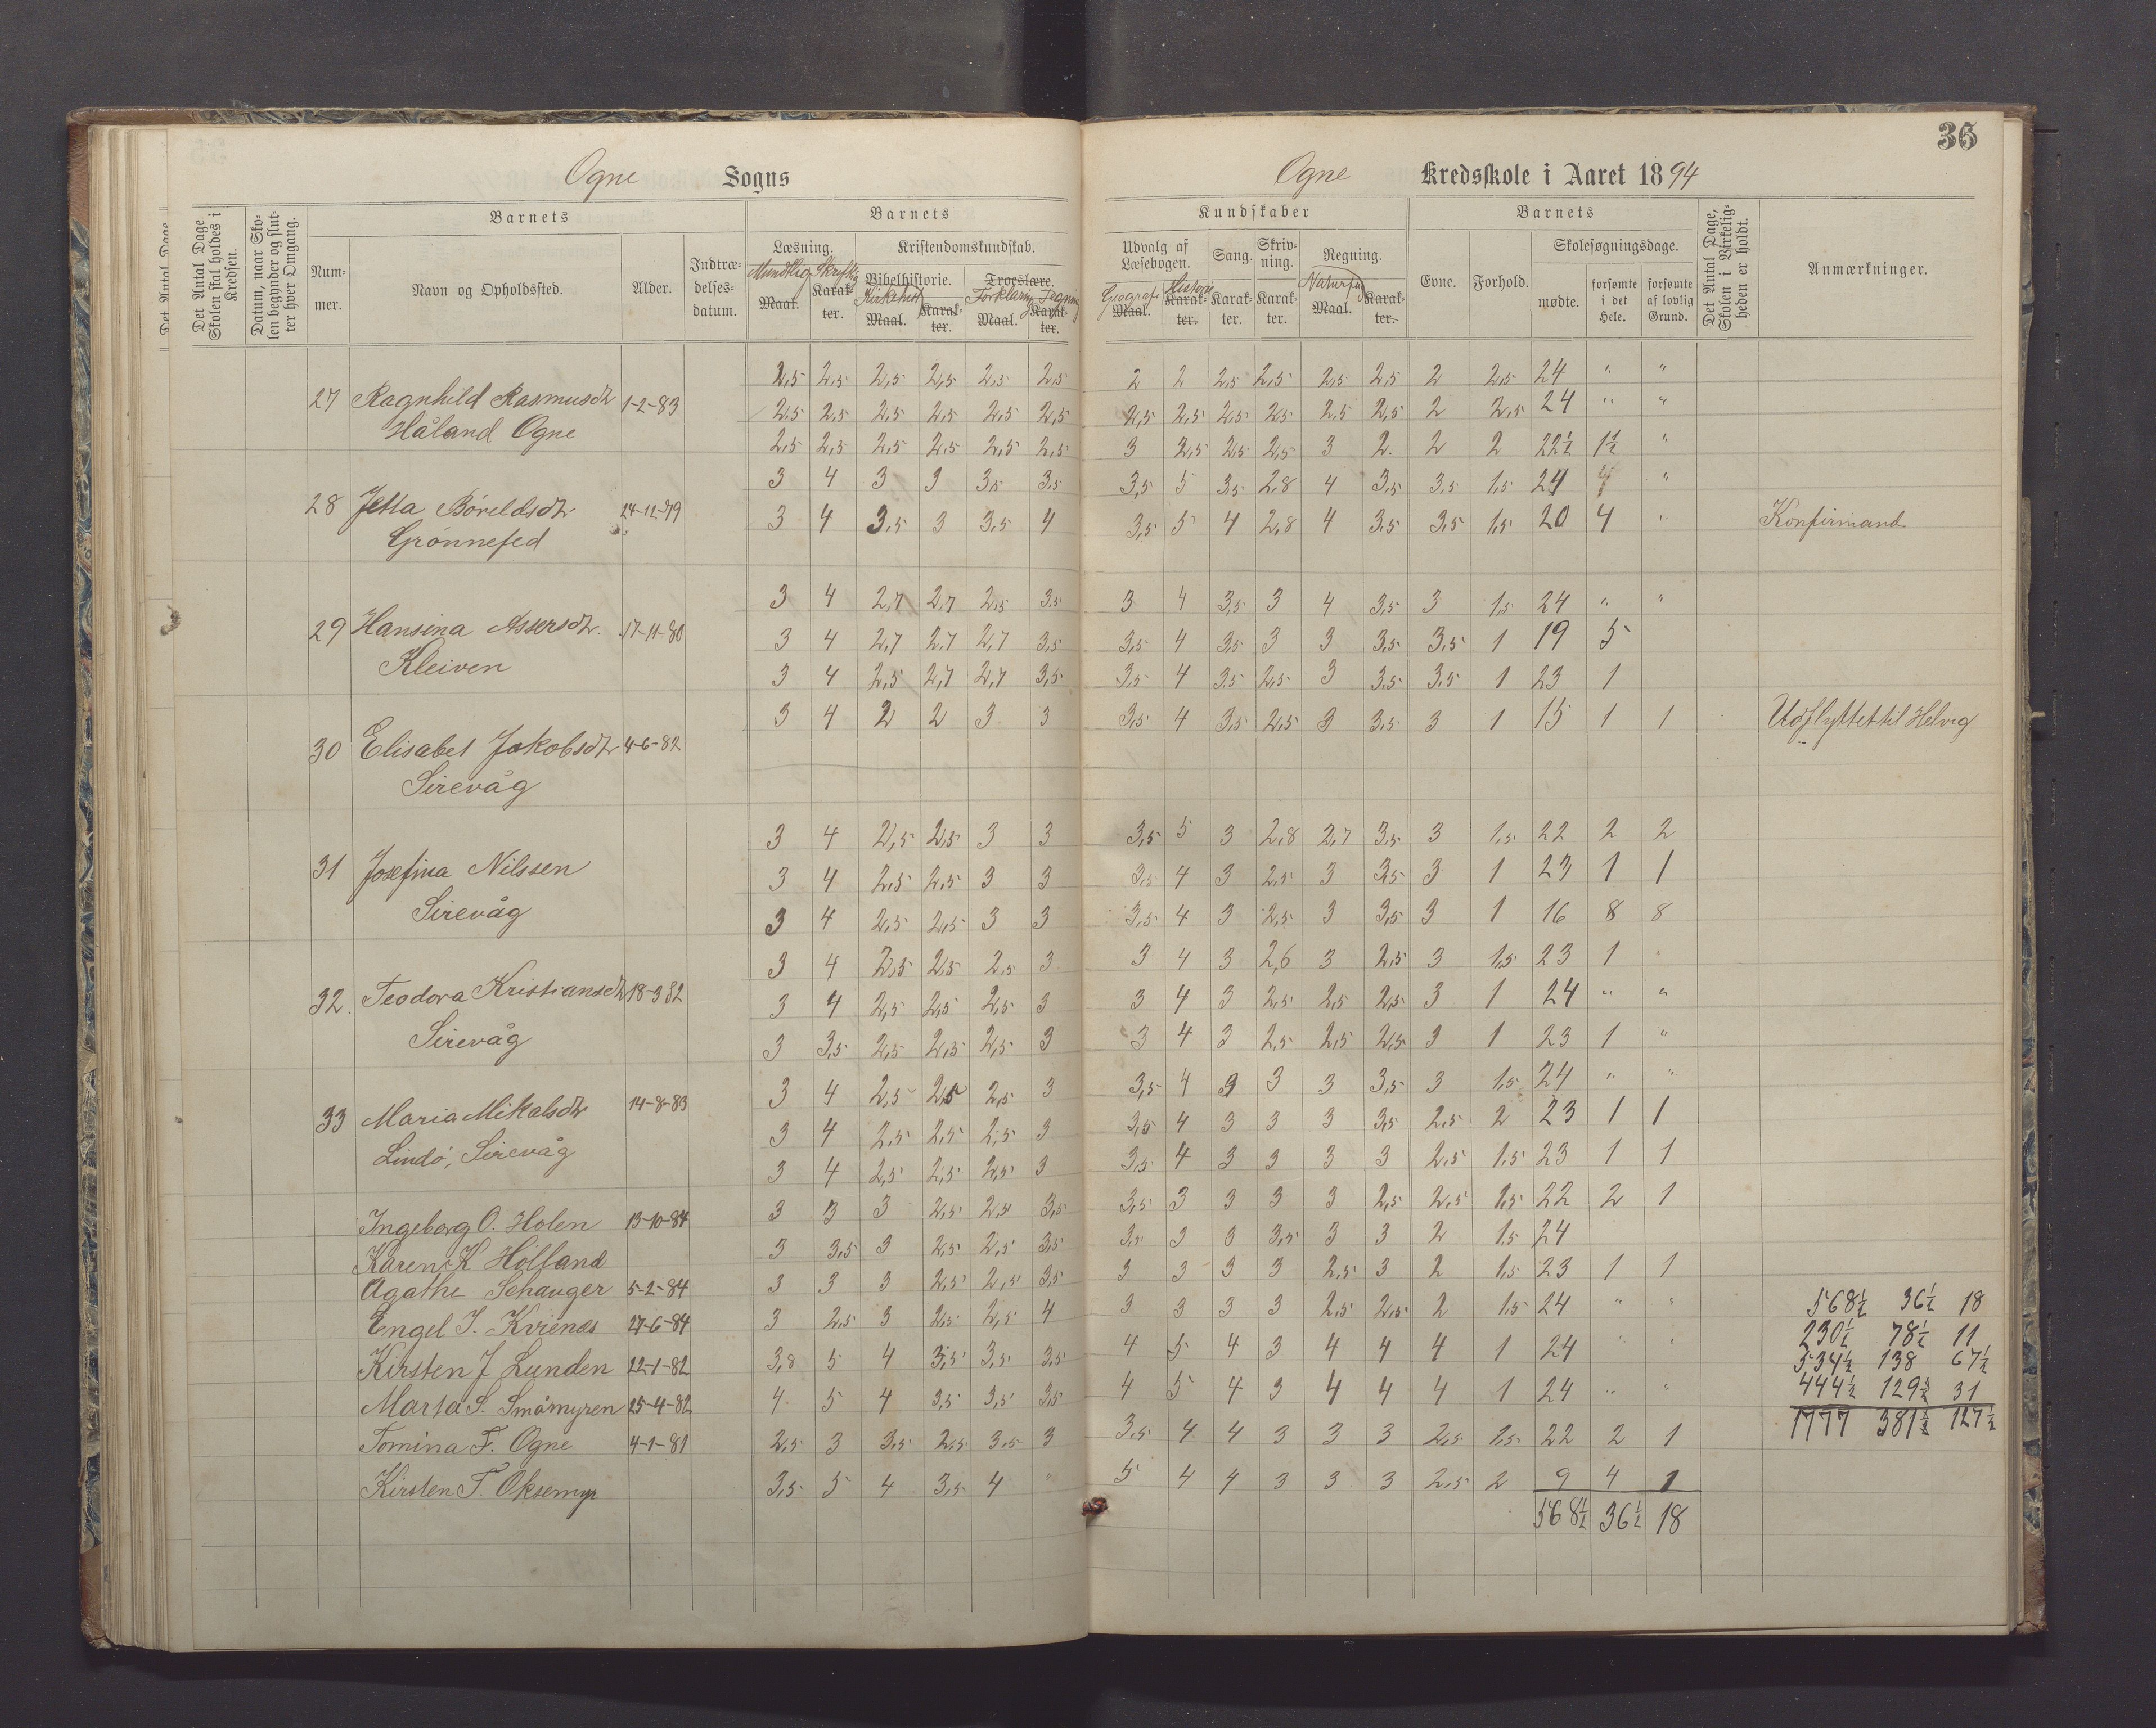 36
Ogne Sogns Ogne Kredsskole i Aaret 1894
Det Antal Dage
Det Antal Dage Skolen skal holdes i Kredsen.
Datum, naar Skolen begynder og slutter hver Omgang.
Barnets
Nummer.
Navn og Opholdssted.
Alder.
Indtrædelsesdatum.
Barnets
Læsning.
Mundtlig Skriftlig
Maal. Karakter.
Kristendomskundskab.
Bibelhistorie. Troeslære.
Kirkehist Forklaring Tegning
Maal. Karakter. Maal. Karakter.
Kundskaber
Udvalg af Læsebogen.
Geografi Historie
Maal. Karakter.
Sang.
Karakter.
Skrivning.
Karakter.
Regning.
Naturfag
Maal. Karakter.
Barnets
Evne.
Forhold.
Skolesøgningsdage.
mødte.
forsømte i det Hele.
forsømte af lovlig Grund.
Det Antal Dage, Skolen i Virkeligheden er holdt.
Anmærkninger.
2,5 2,5 2,5 2,5 2,5 2,5 2 2 2,5 2,5 2,5 2,5 2 2,5 24 " "
27 Ragnhild Rasmusdtr 1-2-83 2,5 2,5 2,5 2,5 2,5 2,5 2,5 2,5 2,5 2,5 2,5 2,5 2 2,5 24 " "
Håland Ogne 2,5 2,5 2,5 2,5 2,5 2,5 3 2,5 2,5 2,5 3 2. 2 2 22½ 1½ "
3 4 3 3 3,5 3,5 3,5 5 3,5 2,8 4 3,5 3,5 1,5 24 "
28 Jetta Böreldsdtr 24-12-79 3 4 3,5 3 3,5 4 3,5 5 4 2,8 4 3,5 3,5 1,5 20 4 " Konfirmand
Grönnefed
3 4 2,7 2,7 2,5 3,5 3 4 3,5 3 4 3,5 3 1,5 24 " "
29 Hansina Assersdtr. 17-11-80 3 4 2,7 2,7 2,7 3,5 3,5 4 3,5 3 3 3,5 3,5 1 19 5
Kleiven 3 4 2,5 2,7 2,7 3,5 3,5 4 3,5 2,5 3 3,5 3,5 1 23 1
3 4 2 2 3 3 3,5 4 3,5 2,5 3 3,5 3 1 15 1 1 Udflyttet til Helvig
30 Elisabet Jakobsdtr 4-6-82
Sirevåg
3 4 2,5 2,5 3 3 3,5 5 3 2,8 2,7 3,5 3 1,5 22 2 2
31 Josefina Nilssen 3 4 2,5 2,5 3 3 3,5 4 3 2,5 3 3,5 3 1 23 1 1
Sirevåg 3 4 2,5 2,5 3 3 3,5 4 3 2,5 3 3,5 3 1 16 8 8
3 4 2,5 2,5 2,5 3 3 4 3 2,6 3 2,5 3 1,5 23 1 "
32. Teodora Kristiansdtr 18-3 82 3 4 2,5 2,5 2,5 3 3 4 3 2,5 2,5 2,5 3 1 24 " "
Sirevåg 3 3,5 2,5 2,5 2,5 3 3 4 3 2,5 2,5 2,5 3 1 23 1 "
3 4 2,5 2,5 2,5 3 3,5 4 3 3 3 3,5 3 1,5 24 " "
33 Maria Mikalsdtr 14-8-83 3 4 2,5 2,5 2,5 3 3,5 4 3 3 3 3,5 2,5 2 23 1 1
Lindö, Sirevåg 3 4 2,5 2,5 2,5 3 3,5 4 3 3 3 3 2,5 1,5 23 1 1
Ingeborg O. Holen 13-10-84 3 3 3 2,5 2,5 3,5 3,5 3 3 3 3 2,5 2,5 1,5 22 2 1
Karen K Holland 3 3,5 3 2,5 2,5 3,5 3,5 3 3 3,5 3 3 2 1,5 24
Agathe Sehauger 5-2-84 3 3 3 2,5 2,5 3,5 3 3 3 3 2,5 3 2 1,5 23 1 1
Engel J. Kvienes 27-6-84 3 2,5 3 2,5 2,5 4 3 3 3 3 2,5 2,5 2 1,5 24 " "
Kirsten J Lunden 22-1-82 3,8 5 4 3,5 3,5 3,5 4 5 4 3 4 4 4 1 24 " "
Marta S. Småmyren 25-4-82 4 5 4 3,5 3,5 3,5 4 5 4 3 4 4 4 1 24 " "
Tomina F. Ogne 4-1-81 2,5 3 3,5 2,5 3,5 3 3,5 4 4 3 3 3 2,5 1,5 22 2 1
Kirsten T. Oksemyr 3,5 5 4 3,5 4 " 5 4 4 3 3 3 2,5 2 9 4 1
568½ 36½ 18
568½ 36½ 18
230½ 78½ 11
534½ 138 67½
444½ 129½ 31
1777 381½ 127½